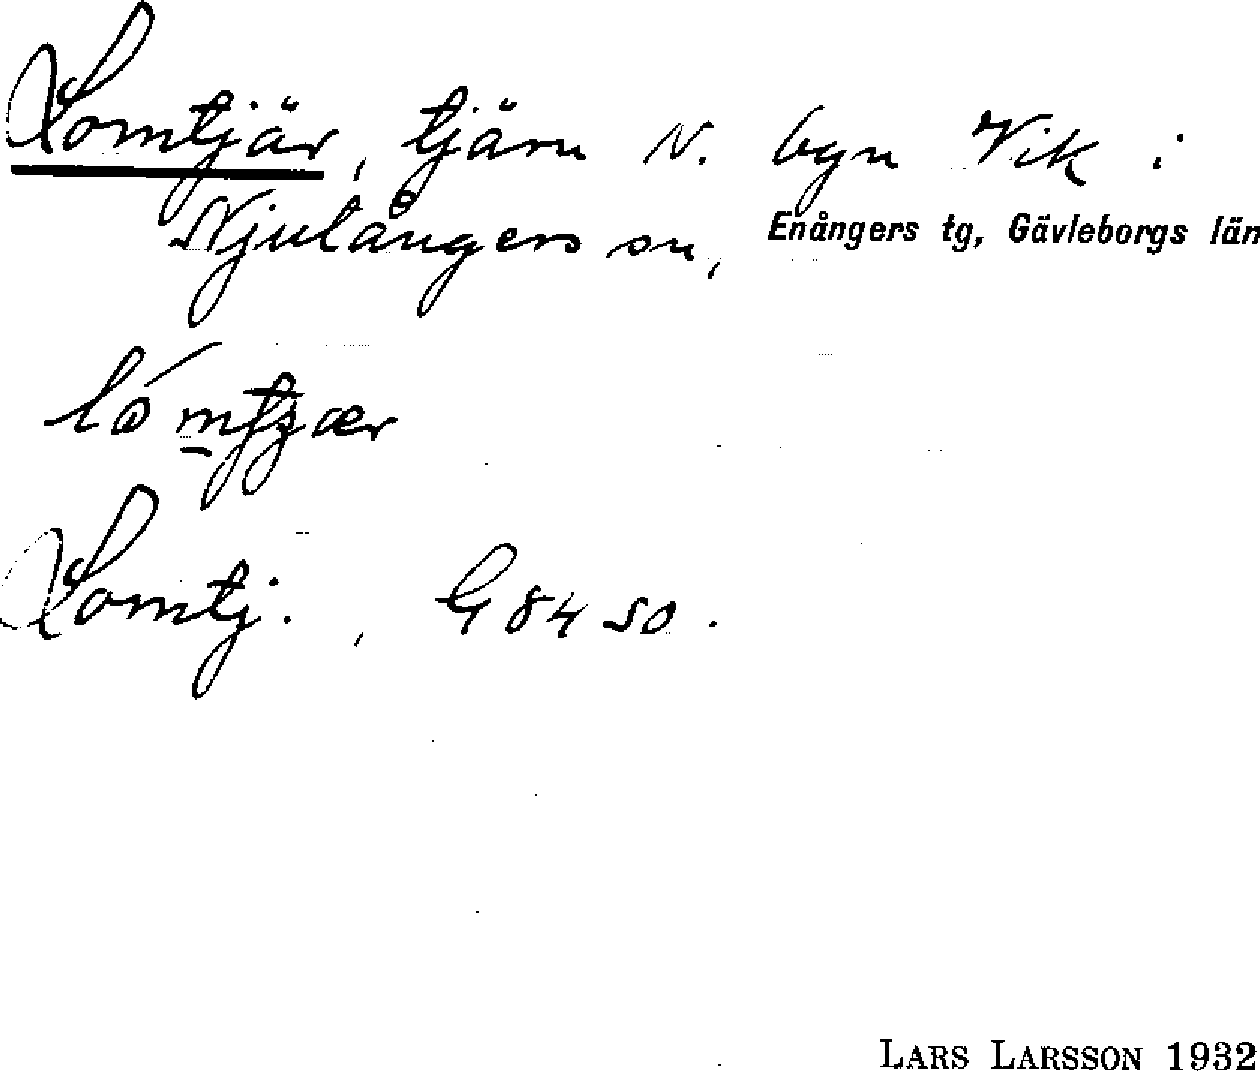 Lomtjär, tjärn N. byn Vik i
Njulångers sn, Enångers tg, Gävleborgs län
Lomtj., G 84 SO.
LARS LARSSON 1932